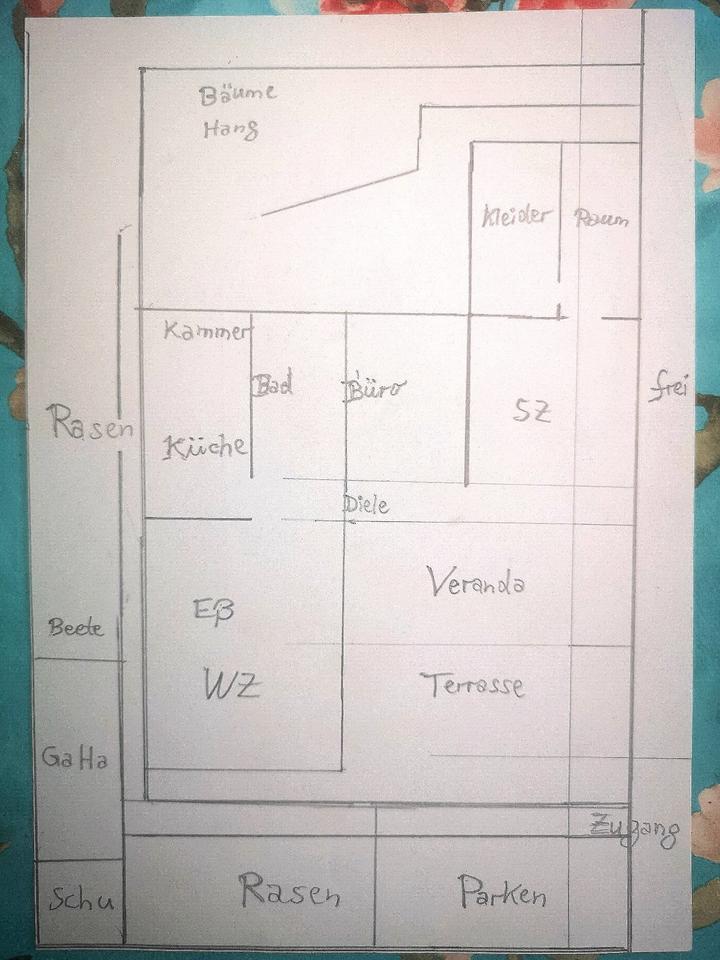 Bäume
Hang
Kleider Raum
Kammer
Bad
Büro
frei
SZ
Rasen
Küche
Diele
Veranda
Eß
Beete
WZ
Terrasse
GaHa
Zugang
Schu
Rasen
Parken